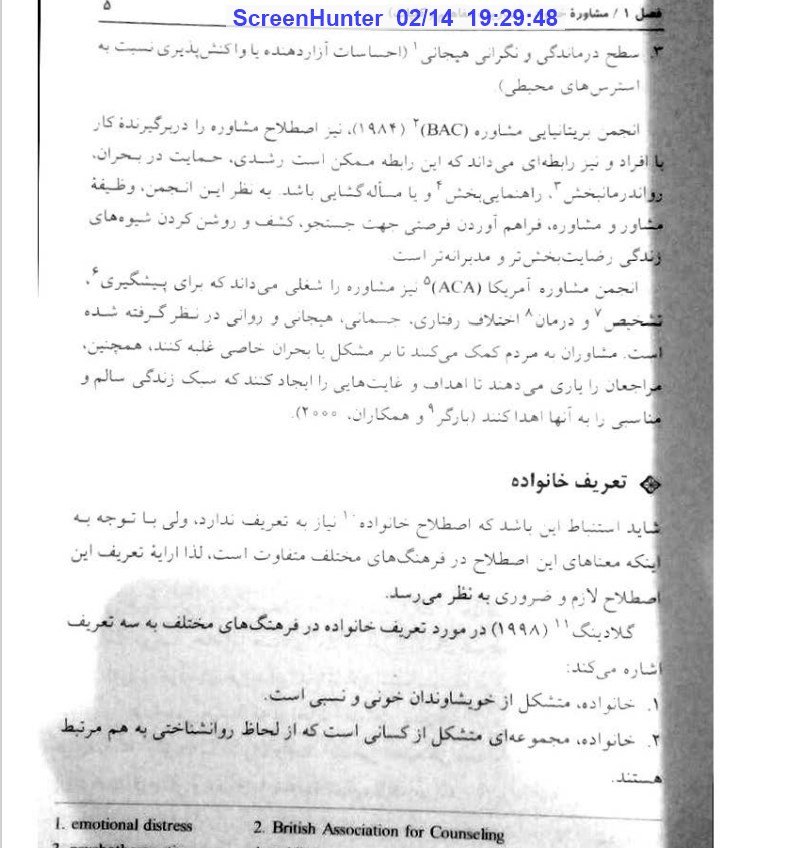 ScreenHunter 02/14 19:29:48
فصل ۱ / مشاورهٔ
۵
۳. سطح درماندگی و نگرانی هیجانی۱ (احساسات آزاردهنده یا واکنش‌پذیری نسبت به
استرس‌های محیطی).
انجمن بریتانیایی مشاوره (BAC)۲ (۱۹۸۴)، نیز اصطلاح مشاوره را دربرگیرندهٔ کار
با افراد و نیز رابطه‌ای می‌داند که این رابطه ممکن است رشدی، حمایت در بحران،
رواندرمانبخش۳، راهنمایی‌بخش۴ و یا مسأله‌گشایی باشد. به نظر این انجمن، وظیفهٔ
مشاور و مشاوره، فراهم آوردن فرصتی جهت جستجو، کشف و روشن کردن شیوه‌های
زندگی رضایت‌بخش‌تر و مدیرانه‌تر است
انجمن مشاوره آمریکا (ACA)۵ نیز مشاوره را شغلی می‌داند که برای پیشگیری۶،
تشخیص۷ و درمان۸ اختلاف رفتاری، جسمانی، هیجانی و روانی در نظر گرفته شده
است. مشاوران به مردم کمک می‌کنند تا بر مشکل یا بحران خاصی غلبه کنند، همچنین،
مراجعان را یاری می‌دهند تا اهداف و غایت‌هایی را ایجاد کنند که سبک زندگی سالم و
مناسبی را به آنها اهدا کنند (بارگر۹ و همکاران، ۲۰۰۰).
تعریف خانواده
شاید استنباط این باشد که اصطلاح خانواده۱۰ نیاز به تعریف ندارد، ولی با توجه به
اینکه معناهای این اصطلاح در فرهنگ‌های مختلف متفاوت است، لذا ارایهٔ تعریف این
اصطلاح لازم و ضروری به نظر می‌رسد.
گلادینگ۱۱ (۱۹۹۸) در مورد تعریف خانواده در فرهنگ‌های مختلف به سه تعریف
اشاره می‌کند:
۱. خانواده، متشکل از خویشاوندان خونی و نسبی است.
۲. خانواده، مجموعه‌ای متشکل از کسانی است که از لحاظ روانشناختی به هم مرتبط
هستند.
1. emotional distress 2. British Association for Counseling